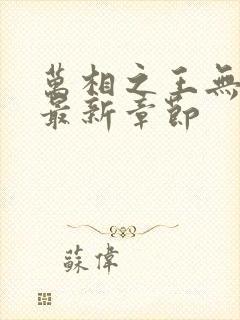 萬相之王無
最新章節
蘇偉